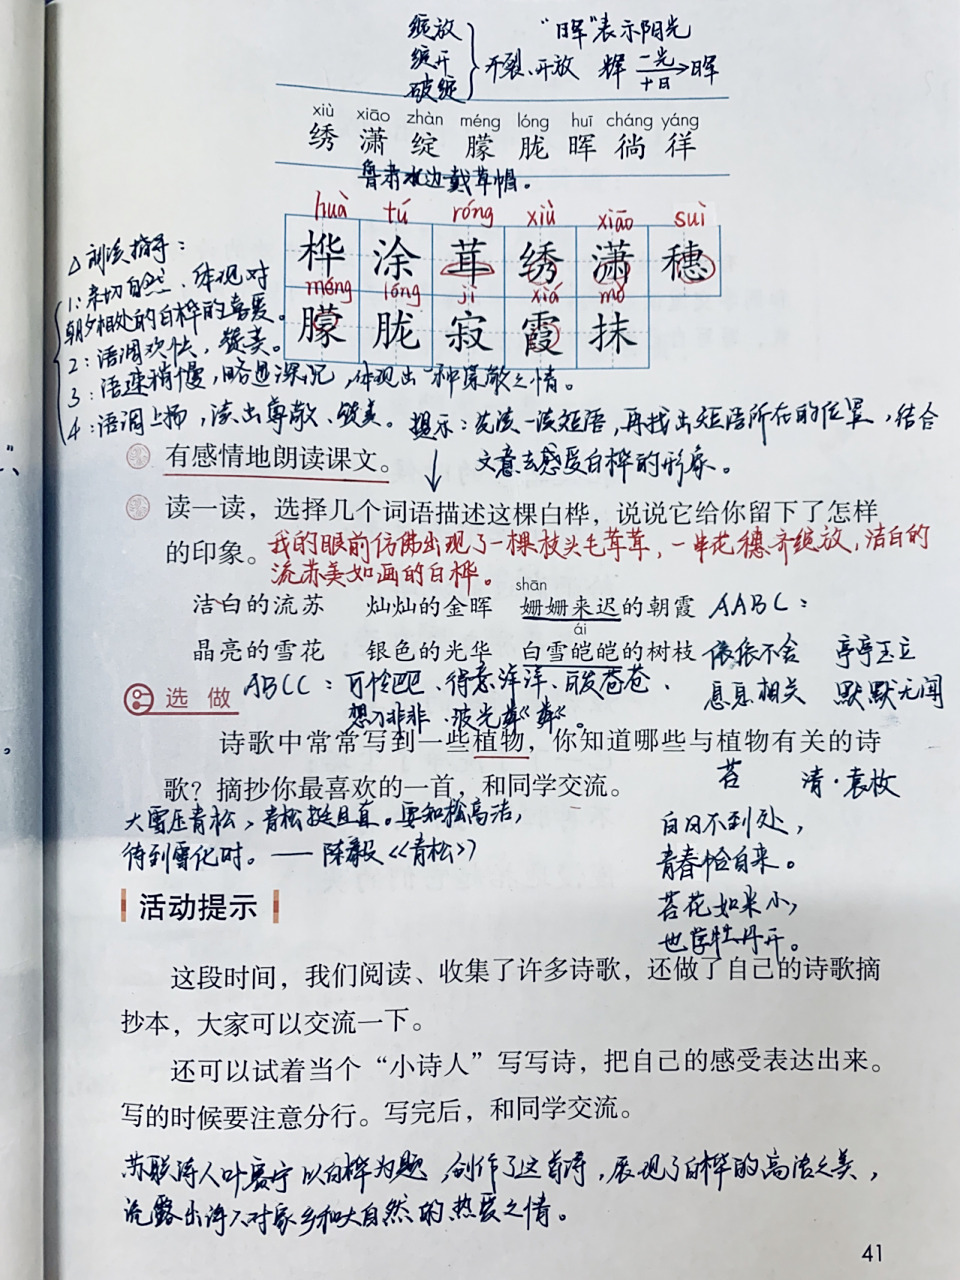 绽放
绽开
破绽
开裂、开放
“晖”表示阳光
辉 一光 十日 晖
xiù xiāo zhàn méng lóng huī cháng yáng
绣 潇 绽 朦 胧 晖 徜 徉
鲁肃水边戴草帽。
huà tú róng xiù xiāo suì
桦 涂 茸 绣 潇 穗
méng lóng jì xiá mǒ
朦 胧 寂 霞 抹
△ 朗读指导：
1：亲切自然、体现对
朝夕相处的白桦的喜爱。
2：语调欢快，赞美。
3：语速稍慢，略显深沉，体现出一种崇敬之情。
4：语调上扬，读出尊敬、赞美。
提示：先读一读短语，再找出短语所在的位置，结合
文意去感受白桦的形象。
有感情地朗读课文。
读一读，选择几个词语描述这棵白桦，说说它给你留下了怎样
的印象。
我的眼前仿佛出现了一棵枝头毛茸茸，一串花穗齐绽放，洁白的
流苏美如画的白桦。
shān
洁白的流苏 灿灿的金晖 姗姗来迟的朝霞
AABC：
ái
晶亮的雪花 银色的光华 白雪皑皑的树枝
依依不舍 亭亭玉立
息息相关 默默无闻
选做
ABCC：可怜巴巴、得意洋洋、
想入非非、波光粼粼。
诗歌中常常写到一些植物，你知道哪些与植物有关的诗
歌？摘抄你最喜欢的一首，和同学交流。
大雪压青松，青松挺且直。要知松高洁，
待到雪化时。——陈毅《青松》
苔 清·袁枚
白日不到处，
青春恰自来。
苔花如米小，
也学牡丹开。
活动提示
这段时间，我们阅读、收集了许多诗歌，还做了自己的诗歌摘
抄本，大家可以交流一下。
还可以试着当个“小诗人”写写诗，把自己的感受表达出来。
写的时候要注意分行。写完后，和同学交流。
苏联诗人叶赛宁以白桦为题，创作了这首诗，展现了白桦的高洁之美，
流露出诗人对家乡和大自然的热爱之情。
41